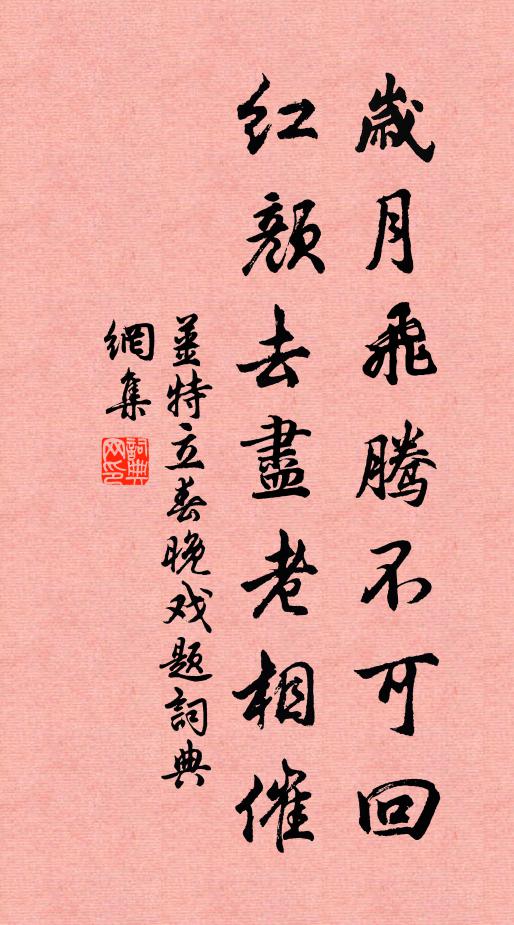 歲月飛騰不可回
紅顏去盡老相催
姜特立春晚戏題詞典
網集
詞典网印